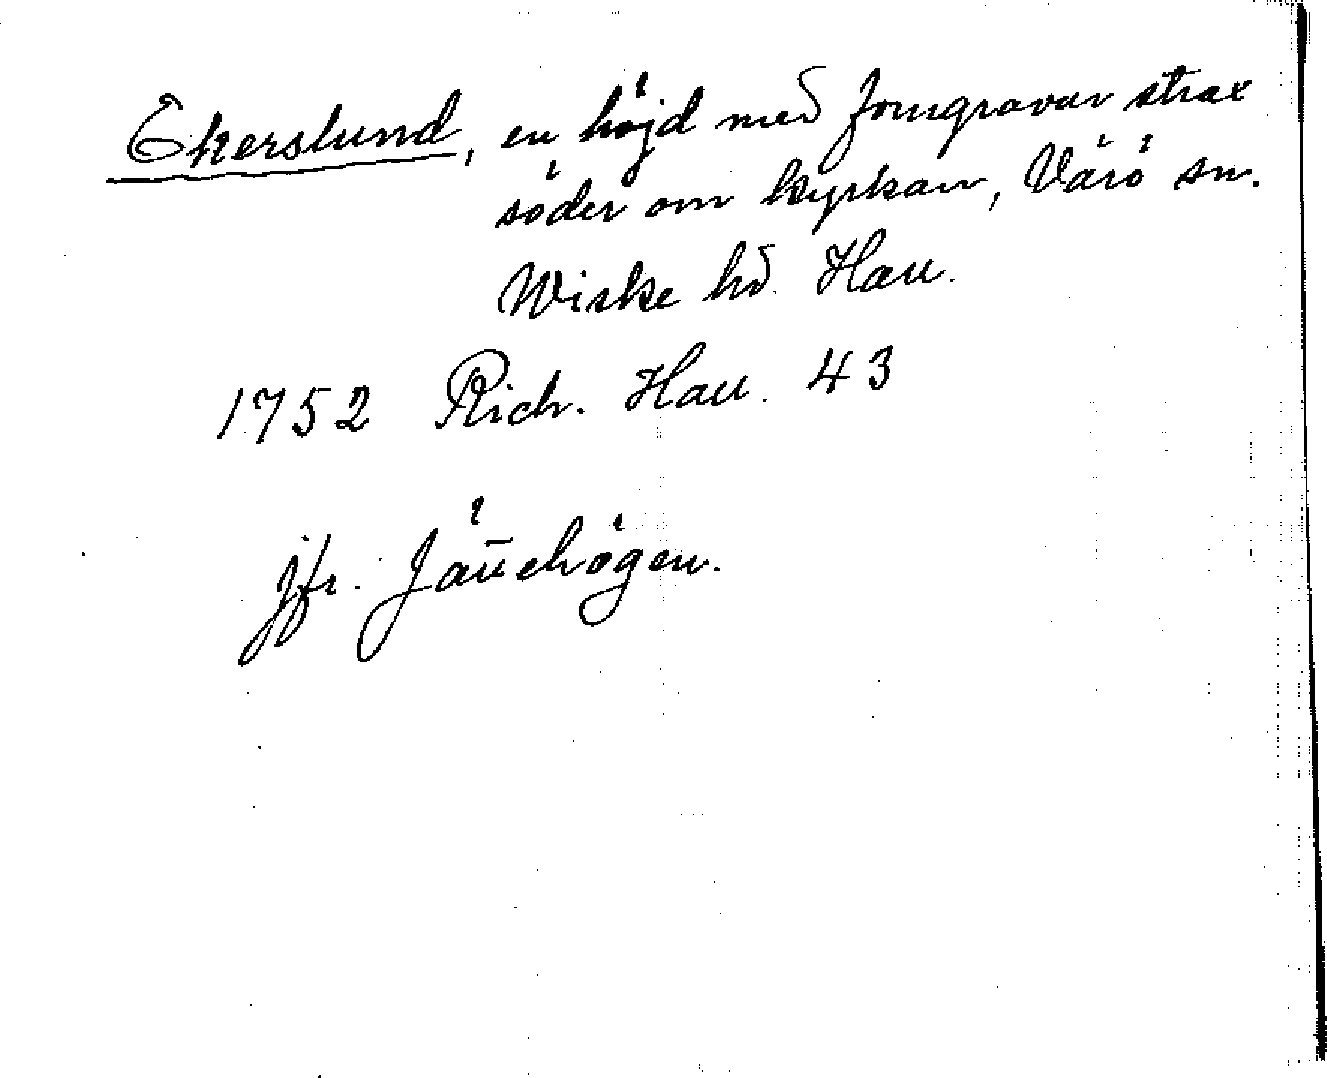 Ekerslund, en höjd med forngravar strax
söder om kyrkan, Värö sn.
Wiske hd. Hall.
1752 Rich. Hall. 43
jfr. Jättehögen.